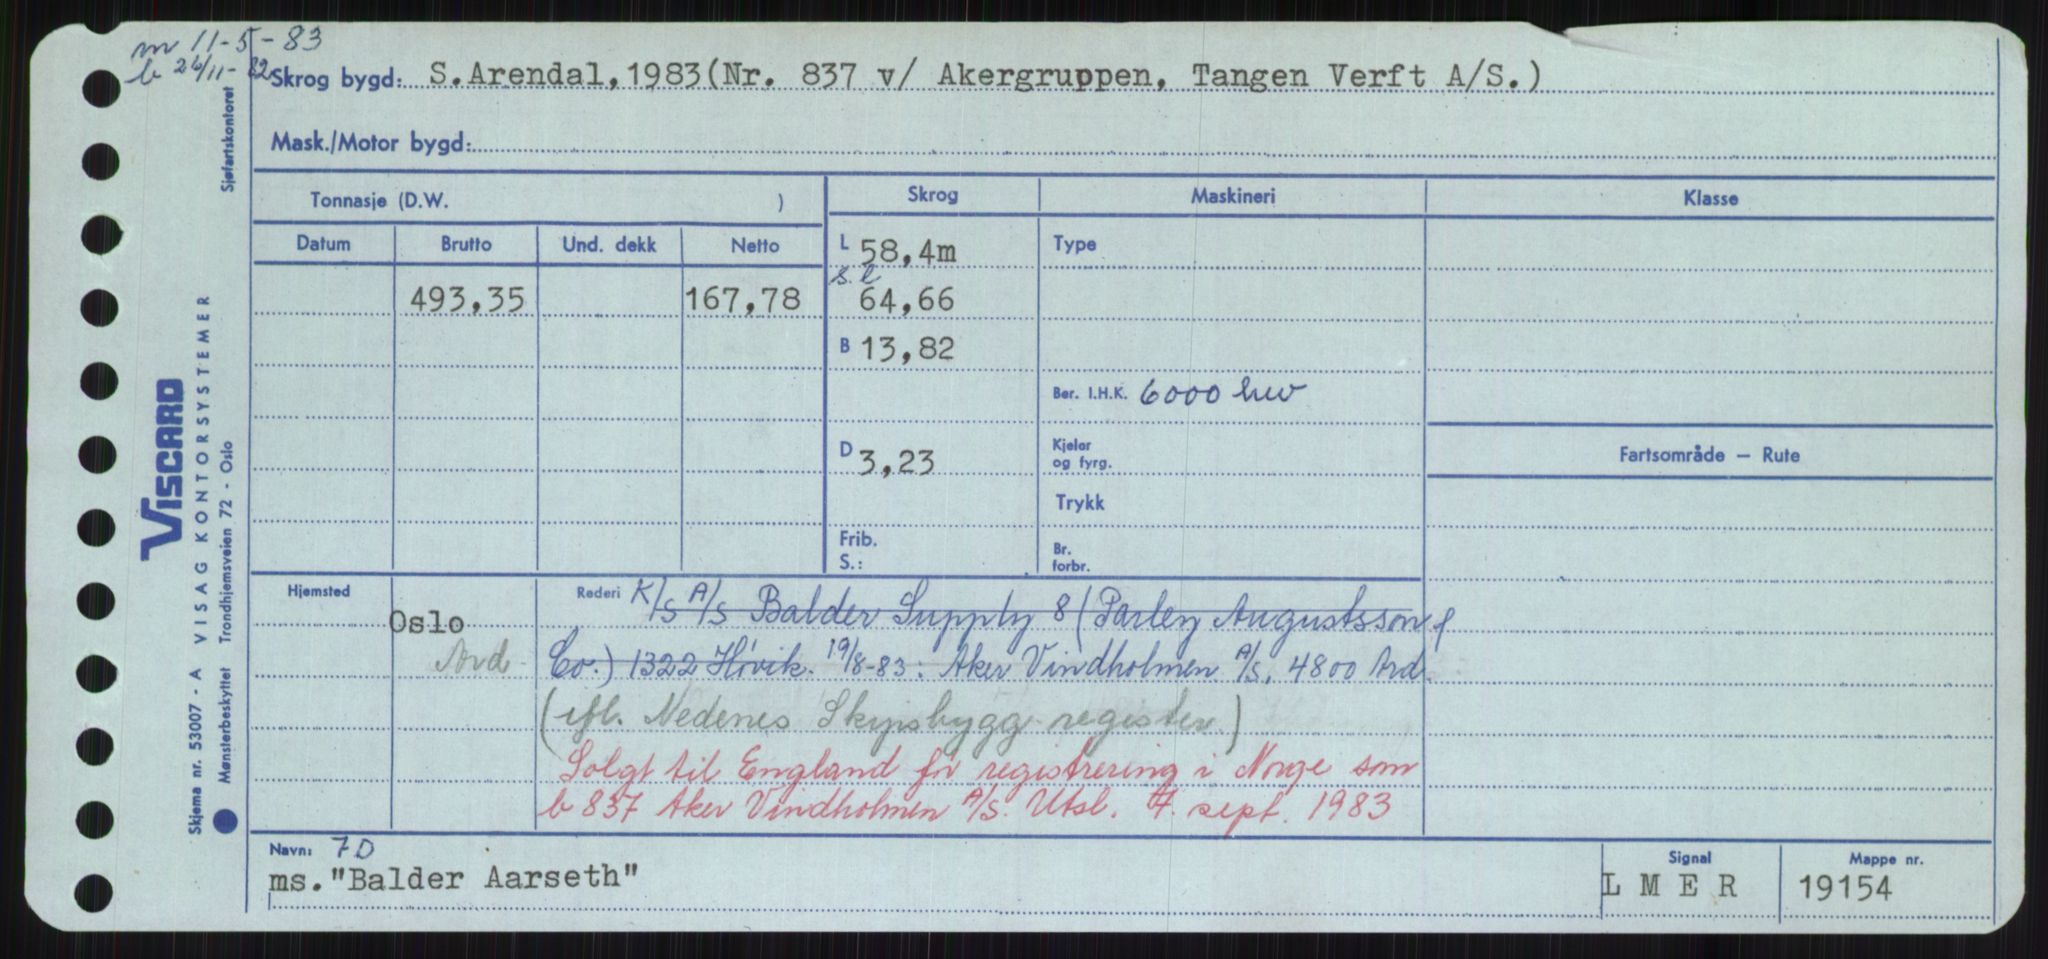 m 11-5-83
b 26/11-82
Skrog bygd: S.Arendal,1983(Nr. 837 v/ Akergruppen, Tangen Verft A/S.)
Mask./Motor bygd:
Tonnasje (D.W. ) Skrog Maskineri Klasse
Datum Brutto Und. dekk Netto L 58,4m Type
s.l
493,35 167,78 64,66
B 13,82
Ber. I.H.K. 6000 hw
D 3,23 Kjeler og fyrg. Fartsområde – Rute
Trykk
Frib. Br.
S.: forbr.
Hjemsted Oslo Rederi K/S A/S Balder Supply 8 (Parley Augustsson &
Ard Co.) 1322 Høvik. 19/8-83: Aker Vindholmen A/S, 4800 Ard.
(ifl. Nedenes Skipsbygg-register.)
Solgt til England før registrering i Norge som
b 837 Aker Vindholmen A/S. Utsl. 7. sept. 1983
Navn: 7D Signal Mappe nr.
ms."Balder Aarseth" L M E R 19154
Sjøfartskontoret
VISCARD
VISAG KONTORSYSTEMER
Skjema nr. 53007 - A
Mønsterbeskyttet Trondhjemsveien 72 - Oslo